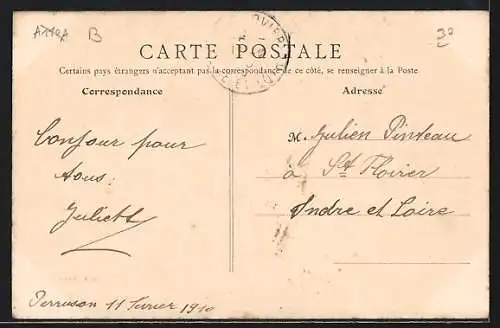 B
30
CARTE POSTALE
Certains pays étrangers n'acceptant pas la correspondance de ce côté, se renseigner à la Poste
Correspondance
Adresse
Bonjour pour
tous:
Juliett
M. Julien Pinteau
à St Floirer
Indre et Loire
Perruson 11 fevrier 1910